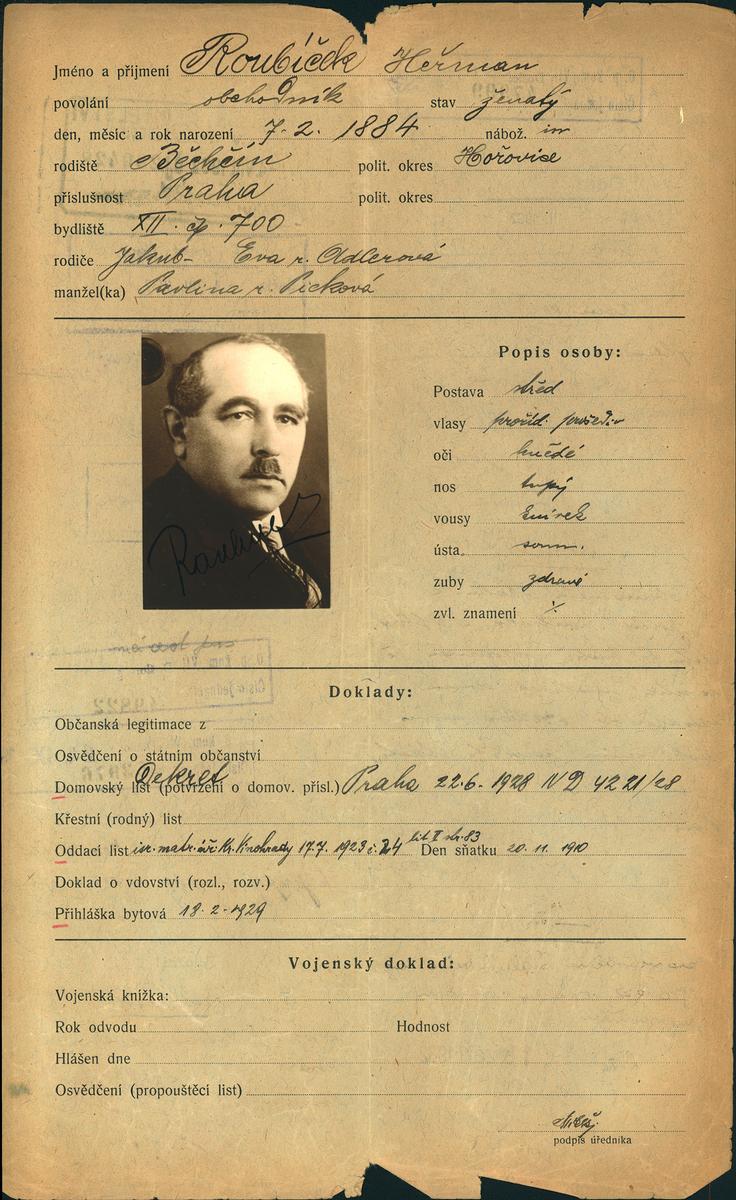 Jméno a příjmení Roubíček Heřman
povolání obchodník stav ženatý
den, měsíc a rok narození 7. 2. 1884 nábož.
rodiště Běchčín polit. okres Hořovice
příslušnost Praha polit. okres
bydliště XII. čp. 700
rodiče Jakub - Eva r. Adlerová
manžel(ka) Pavlina r. Picková
Popis osoby:
Postava střed
vlasy prořid. prošediv
oči hnědé
nos tupý
vousy knírek
ústa soum.
zuby zdravé
zvl. znamení ·/.
Doklady:
Občanská legitimace z
Osvědčení o státním občanství
Dekret
Domovský list (potvrzení o domov. přísl.) Praha 22. 6. 1928 ND 4221/28
Křestní (rodný) list
lit II str. 83
Oddací list isr. matr. úř. Kr. Vinohrady 17.7. 1923 č. Den sňatku 20. 11. 1910
Doklad o vdovství (rozl., rozv.)
Přihláška bytová 18. 2. 1929
Vojenský doklad:
Vojenská knížka:
Rok odvodu Hodnost
Hlášen dne
Osvědčení (propouštěcí list)
podpis úředníka